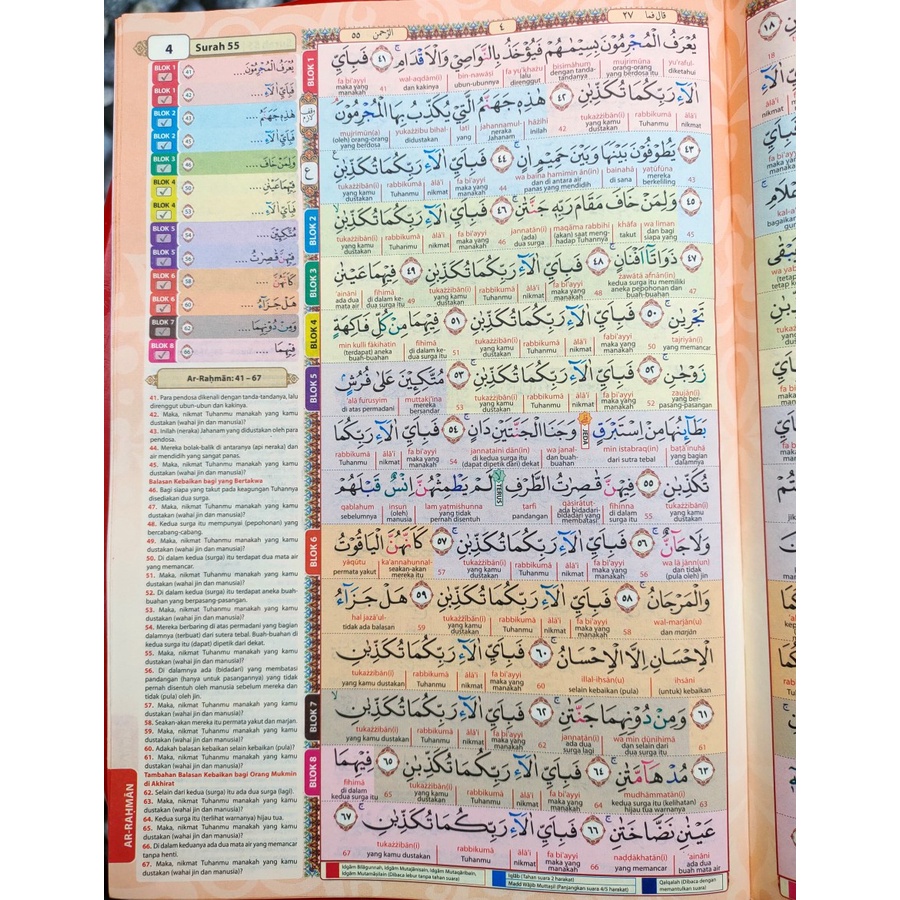 4 Surah 55
٥٥ الرحمن
٤
قال فما ٢٧
BLOK 1 41 يُعْرَفُ الْمُجْرِمُوْنَ ....
BLOK 1 42 فَبِاَيِّ اٰلَاۤءِ ....
BLOK 2 43 هٰذِهٖ جَهَنَّمُ ....
BLOK 2 45 فَبِاَيِّ اٰلَاۤءِ ....
BLOK 3 46 وَلِمَنْ خَافَ ....
BLOK 4 50 فِيْهِمَا عَيْنٰنِ ....
BLOK 4 53 فَبِاَيِّ اٰلَاۤءِ ....
BLOK 5 54 مُتَّكِـِٕيْنَ ....
BLOK 5 56 فِيْهِنَّ قٰصِرٰتُ ....
BLOK 6 58 كَاَنَّهُنَّ ....
BLOK 6 60 هَلْ جَزَاۤءُ ....
BLOK 7 62 وَمِنْ دُوْنِهِمَا ....
BLOK 8 66 فِيْهِمَا ....
Ar-Raḥmān: 41 – 67
41. Para pendosa dikenali dengan tanda-tandanya, lalu
direnggut ubun-ubun dan kakinya.
42. Maka, nikmat Tuhanmu manakah yang kamu
dustakan (wahai jin dan manusia)?
43. Inilah (neraka) Jahanam yang didustakan oleh para
pendosa.
44. Mereka bolak-balik di antaranya (api neraka) dan
air mendidih yang sangat panas.
45. Maka, nikmat Tuhanmu manakah yang kamu
dustakan (wahai jin dan manusia)?
Balasan Kebaikan bagi yang Bertakwa
46. Bagi siapa yang takut pada keagungan Tuhannya
disediakan dua surga.
47. Maka, nikmat Tuhanmu manakah yang kamu
dustakan (wahai jin dan manusia)?
48. Kedua surga itu mempunyai (pepohonan) yang
bercabang-cabang.
49. Maka, nikmat Tuhanmu manakah yang kamu
dustakan (wahai jin dan manusia)?
50. Di dalam kedua (surga) itu terdapat dua mata air
yang memancar.
51. Maka, nikmat Tuhanmu manakah yang kamu
dustakan (wahai jin dan manusia)?
52. Di dalam kedua (surga) itu terdapat aneka buah-
buahan yang berpasang-pasangan.
53. Maka, nikmat Tuhanmu manakah yang kamu
dustakan (wahai jin dan manusia)?
54. Mereka berbaring di atas permadani yang bagian
dalamnya (terbuat) dari sutera tebal. Buah-buahan di
kedua surga itu (dapat) dipetik dari dekat.
55. Maka, nikmat Tuhanmu manakah yang kamu
dustakan (wahai jin dan manusia)?
56. Di dalamnya ada (bidadari) yang membatasi
pandangan (hanya untuk pasangannya) yang tidak
pernah disentuh oleh manusia sebelum mereka dan
tidak (pula) oleh jin.
57. Maka, nikmat Tuhanmu manakah yang kamu
dustakan (wahai jin dan manusia)?
58. Seakan-akan mereka itu permata yakut dan marjan.
59. Maka, nikmat Tuhanmu manakah yang kamu
dustakan (wahai jin dan manusia)?
60. Adakah balasan kebaikan selain kebaikan (pula)?
61. Maka, nikmat Tuhanmu manakah yang kamu
dustakan (wahai jin dan manusia)?
Tambahan Balasan Kebaikan bagi Orang Mukmin
di Akhirat
62. Selain dari kedua (surga) itu ada dua surga (lagi).
63. Maka, nikmat Tuhanmu manakah yang kamu
dustakan (wahai jin dan manusia)?
64. Kedua surga itu (terlihat warnanya) hijau tua.
65. Maka, nikmat Tuhanmu manakah yang kamu
dustakan (wahai jin dan manusia)?
66. Di dalam keduanya ada dua mata air yang memancar
tanpa henti.
67. Maka, nikmat Tuhanmu manakah yang kamu
dustakan (wahai jin dan manusia)?
AR-RAḤMĀN
BLOK 1
BLOK 2
BLOK 3
BLOK 4
BLOK 5
BLOK 6
BLOK 7
BLOK 8
يُعْرَفُ الْمُجْرِمُوْنَ بِسِيْمٰهُمْ فَيُؤْخَذُ بِالنَّوَاصِيْ وَالْاَقْدَامِ ۚ ٤١ فَبِاَيِّ
yu'rafu diketahui mujrimūna orang-orang yang berdosa itu bisīmāhum dengan tanda-tandanya fa yu'khażu lalu direnggut bin-nawāṣi ubun-ubunnya wal-aqdām(i) dan kakinya 41 fa bi'ayyi maka yang manakah
اٰلَاۤءِ رَبِّكُمَا تُكَذِّبٰنِ ٤٢ هٰذِهٖ جَهَنَّمُ الَّتِيْ يُكَذِّبُ بِهَا الْمُجْرِمُوْنَ ۘ
ālā'i nikmat rabbikumā Tuhanmu tukażżibān(i) yang kamu dustakan 42 hāżihī inilah jahannamul- neraka Jahanam latī yang yukażżibu bihal- didustakan mujrimūn(a) (oleh) orang-orang yang berdosa
٤٣ يَطُوْفُوْنَ بَيْنَهَا وَبَيْنَ حَمِيْمٍ اٰنٍ ۚ ٤٤ فَبِاَيِّ اٰلَاۤءِ رَبِّكُمَا تُكَذِّبٰنِ ࣖ
43 yaṭūfūna mereka berkeliling bainahā di sana wa baina ḥamīmin ān(in) dan di antara air panas yang mendidih 44 fa bi'ayyi maka yang manakah ālā'i nikmat rabbikumā Tuhanmu tukażżibān(i) yang kamu dustakan
٤٥ وَلِمَنْ خَافَ مَقَامَ رَبِّهٖ جَنَّتٰنِ ۚ ٤٦ فَبِاَيِّ اٰلَاۤءِ رَبِّكُمَا تُكَذِّبٰنِ ۙ
45 wa liman dan bagi siapa yang khāfa takut maqāma rabbihī (akan) saat menghadap Tuhannya jannatān(i) (ada) dua surga 46 fa bi'ayyi maka yang manakah ālā'i nikmat rabbikumā Tuhanmu tukażżibān(i) yang kamu dustakan
٤٧ ذَوَاتَآ اَفْنَانٍ ۚ ٤٨ فَبِاَيِّ اٰلَاۤءِ رَبِّكُمَا تُكَذِّبٰنِ ٤٩ فِيْهِمَا عَيْنٰنِ
47 żawātā afnān(in) kedua surga itu memiliki aneka pepohonan dan buah-buahan 48 fa bi'ayyi maka yang manakah ālā'i nikmat rabbikumā Tuhanmu tukażżibān(i) yang kamu dustakan 49 fīhimā di dalam kedua surga itu 'aināni ada dua mata air
تَجْرِيٰنِ ۚ ٥٠ فَبِاَيِّ اٰلَاۤءِ رَبِّكُمَا تُكَذِّبٰنِ ٥١ فِيْهِمَا مِنْ كُلِّ فَاكِهَةٍ
tajriyān(i) yang memancar 50 fa bi'ayyi maka yang manakah ālā'i nikmat rabbikumā Tuhanmu tukażżibān(i) yang kamu dustakan 51 fīhimā di dalam kedua surga itu min kulli fākihatin (terdapat) aneka buah-buahan
زَوْجٰنِ ۚ ٥٢ فَبِاَيِّ اٰلَاۤءِ رَبِّكُمَا تُكَذِّبٰنِ ٥٣ مُتَّكِـِٕيْنَ عَلٰى فُرُشٍ ۢ
zaujān(i) yang berpasang-pasangan 52 fa bi'ayyi maka yang manakah ālā'i nikmat rabbikumā Tuhanmu tukażżibān(i) yang kamu dustakan 53 muttaki'īna mereka bersandar 'alā furusyim di atas permadani
بَطَاۤىِٕنُهَا مِنْ اِسْتَبْرَقٍ ۗ وَجَنَا الْجَنَّتَيْنِ دَانٍ ۚ ٥٤ فَبِاَيِّ اٰلَاۤءِ رَبِّكُمَا
JEDA
baṭā'inuhā yang bagian dalamnya min istabraq(in) dari sutra tebal wa janal- dan buah-buahan jannataini dān(in) di kedua surga itu (dapat dipetik dari) dekat 54 fa bi'ayyi maka yang manakah ālā'i nikmat rabbikumā Tuhanmu
تُكَذِّبٰنِ ٥٥ فِيْهِنَّ قٰصِرٰتُ الطَّرْفِ ۙ لَمْ يَطْمِثْهُنَّ اِنْسٌ قَبْلَهُمْ
TERUS
tukażżibān(i) yang kamu dustakan 55 fīhinna di dalam surga itu qāṣirātuṭ- ada bidadari-bidadari yang membatasi ṭarfi pandangan lam yaṭmiṡhunna yang tidak pernah disentuh insun (oleh) manusia qablahum sebelumnya
وَلَا جَاۤنٌّ ۚ ٥٦ فَبِاَيِّ اٰلَاۤءِ رَبِّكُمَا تُكَذِّبٰنِ ۚ ٥٧ كَاَنَّهُنَّ الْيَاقُوْتُ
wa lā jānn(un) dan tidak (pula oleh) jin 56 fa bi'ayyi maka yang manakah ālā'i nikmat rabbikumā Tuhanmu tukażżibān(i) yang kamu dustakan 57 ka'annahunnal- seakan-akan mereka itu yāqūtu permata yakut
وَالْمَرْجَانُ ۚ ٥٨ فَبِاَيِّ اٰلَاۤءِ رَبِّكُمَا تُكَذِّبٰنِ ٥٩ هَلْ جَزَاۤءُ
wal-marjān(u) dan marjan 58 fa bi'ayyi maka yang manakah ālā'i nikmat rabbikumā Tuhanmu tukażżibān(i) yang kamu dustakan 59 hal jazā'ul- tidak ada balasan
الْاِحْسَانِ اِلَّا الْاِحْسَانُ ۚ ٦٠ فَبِاَيِّ اٰلَاۤءِ رَبِّكُمَا تُكَذِّبٰنِ
iḥsāni (untuk) kebaikan illal-iḥsān(u) selain kebaikan (pula) 60 fa bi'ayyi maka yang manakah ālā'i nikmat rabbikumā Tuhanmu tukażżibān(i) yang kamu dustakan
٦١ وَمِنْ دُوْنِهِمَا جَنَّتٰنِ ۚ ٦٢ فَبِاَيِّ اٰلَاۤءِ رَبِّكُمَا تُكَذِّبٰنِ ۙ
61 wa min dūnihimā dan selain dari dua surga itu jannatān(i) ada dua surga lagi 62 fa bi'ayyi maka yang manakah ālā'i nikmat rabbikumā Tuhanmu tukażżibān(i) yang kamu dustakan
٦٣ مُدْهَاۤمَّتٰنِ ۚ ٦٤ فَبِاَيِّ اٰلَاۤءِ رَبِّكُمَا تُكَذِّبٰنِ ۚ ٦٥ فِيْهِمَا
63 mudhāmmatān(i) kedua surga itu (kelihatan) hijau tua warnanya 64 fa bi'ayyi maka yang manakah ālā'i nikmat rabbikumā Tuhanmu tukażżibān(i) yang kamu dustakan 65 fīhimā di dalam kedua surga itu
عَيْنٰنِ نَضَّاخَتٰنِ ۚ ٦٦ فَبِاَيِّ اٰلَاۤءِ رَبِّكُمَا تُكَذِّبٰنِ ٦٧
'aināni ada dua mata air naḍḍākhatān(i) yang memancar 66 fa bi'ayyi maka yang manakah ālā'i nikmat rabbikumā Tuhanmu tukażżibān(i) yang kamu dustakan 67
Idgām Bilāgunnah, Idgām Mutajānisain, Idgām Mutaqāribain,
Idgām Mutamāṡilain (Dibaca lebur tanpa tahan suara)
Iqlāb (Tahan suara 2 harakat)
Madd Wājib Muttaṣil (Panjangkan suara 4/5 harakat)
Qalqalah (Dibaca dengan
memantulkan suara)